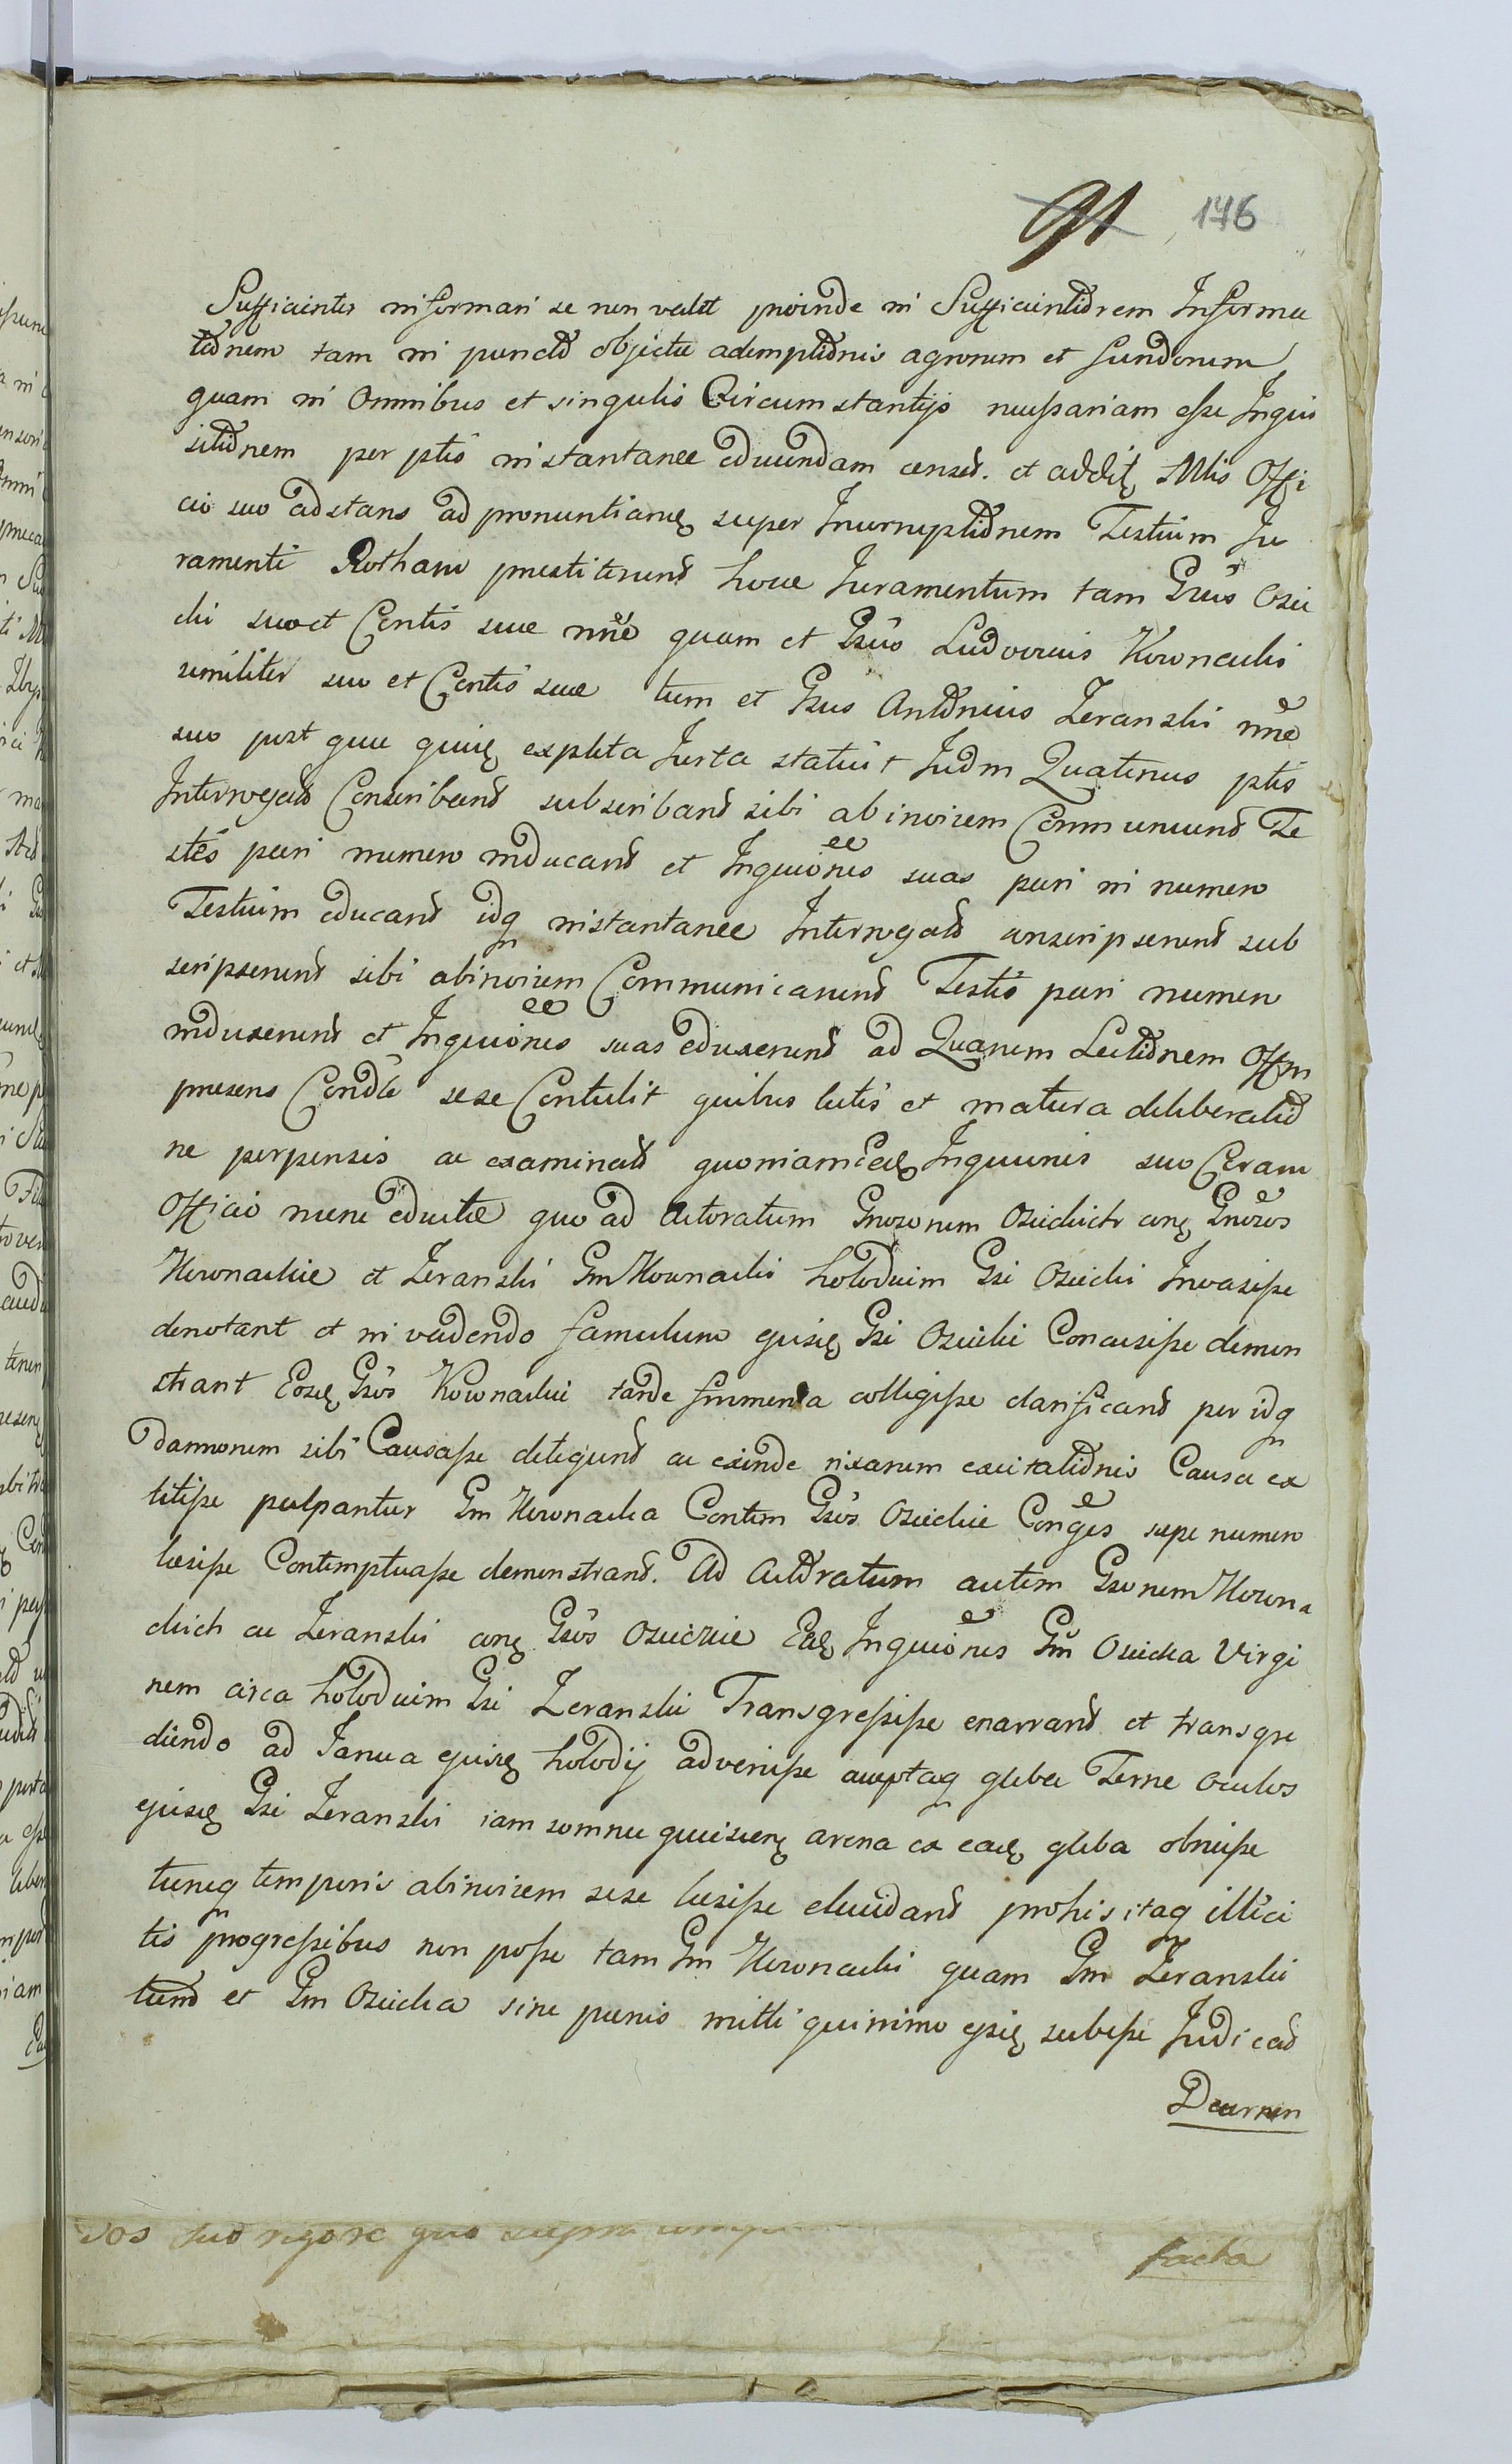 91 176
Sufficienter informari se non valet proinde in Sufficientiorem Informa
tionem tam in puncto objectae ademptionis agrorum et fundorum
quam in Omnibus et singulis Circumstantijs necessariam esse Inqui
sitionem per ptes instantanee educendam censet. et addit Mlis Offi
cio suo adstans ad pronuntian super Incorruptionem Testium Ju
ramenti Rotham prestiterunt hocce Juramentum tam Gsus Osie
cki suo et Contis suae nne quam et Gsus Ludovicus Kownacki
similiter suo et Contis suae tum et Gsus Antonius Zeranski nne
suo post quae quid expleta Jurta statuit Judm Quatenus ptes
Interrogato Conscribant subscribant sibi abinvicem Communicent Te
stes pari numero inducant et Inquiones suas pari in numero
Testium educant idq instantanee Interrogato conscripserunt sub
scripserunt sibi abinvicem Communicarunt Testes pari numero
induxerunt et Inquiones suas eduxerunt ad Quarum Lectionem Offm
presens Condle sese Contulit quibus lectis et matura deliberatio
ne perpensis ac examinato quoniam eaed Inquiones suo Coram
Officio nunc eductae quo ad Actoratum Gnosorum Osieckich conq Gnosos
Kownackie et Zeranski Gm Kownacki holodium Gsi Osiecki Invasisse
denotant et invadendo famulum ejusd Gsi Osiecki Concusisse demon
strant Eosd Gsos Kownackie tarde frumenta colligisse clarificant per idq
Damnorum sibi Causasse detegunt ac exinde rixarum excitationis Causa ex
titisse palpantur Gm Kownacka Contem Gsos Osieckie Conges sepe numero
laesisse Contemptuasse demonstrant. Ad Actoratum autem Gsorum Kowna
ckich ac Zeranski conq Gsos Osieckie Eaed Inquiones Gm Osiecka Virgi
nem circa holodium Gsi Zeranski Transgressisse enarrant et transgre
diendo ad Janua ejusd holodij advenisse acceptaq gleba Terrae oculos
ejusd Gsi Zeranski iam somno quiescen arena ex eaed gleba obruisse
tuncq temporis abinvicem sese laesisse elucidant prohis itaq illici
tis progressibus non posse tam Gm Kownacki quam Gm Zeranski
tum et Gm Osiecka sine penis mitti quinimo ejsd subesse Judicato
Decernen
suo rigore quo supra
facta